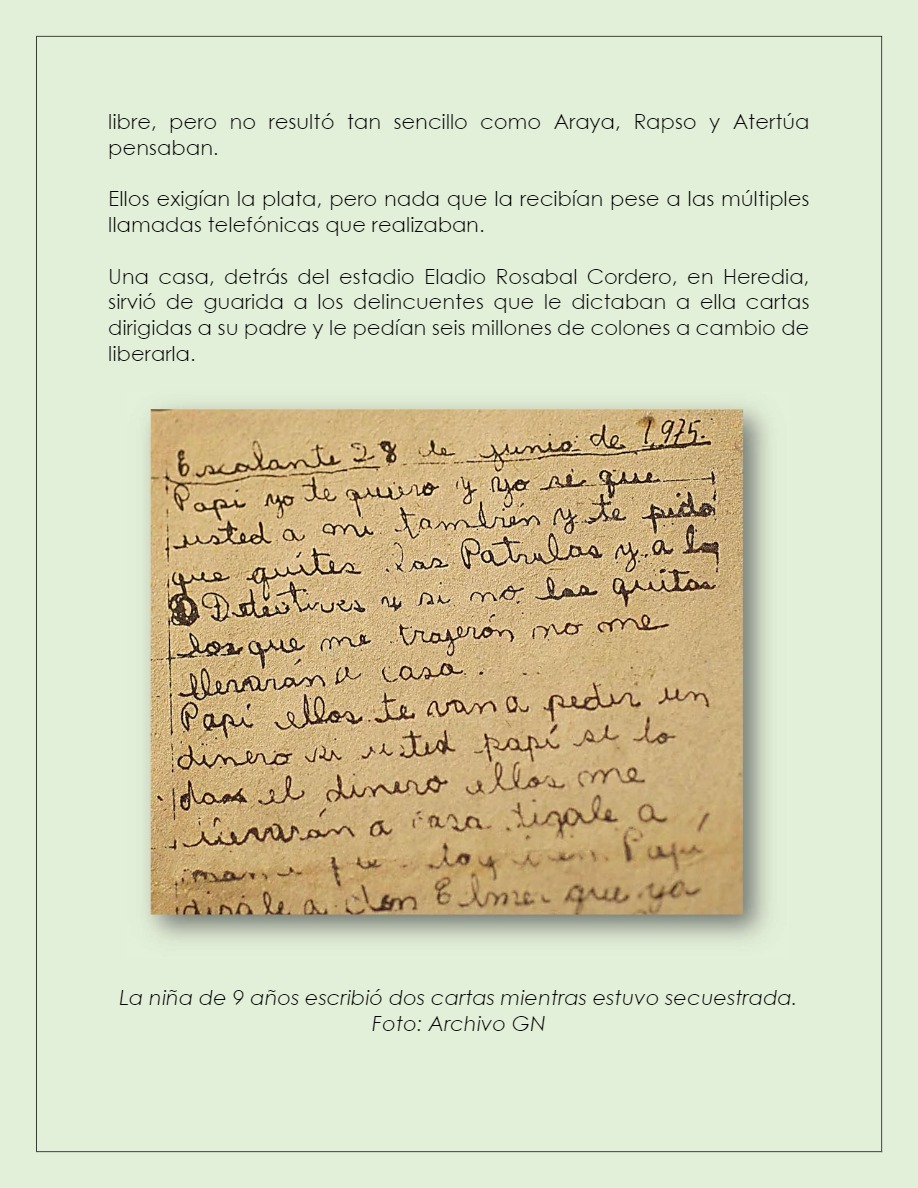 libre, pero no resultó tan sencillo como Araya, Rapso y Atertúa
pensaban.
Ellos exigían la plata, pero nada que la recibían pese a las múltiples
llamadas telefónicas que realizaban.
Una casa, detrás del estadio Eladio Rosabal Cordero, en Heredia,
sirvió de guarida a los delincuentes que le dictaban a ella cartas
dirigidas a su padre y le pedían seis millones de colones a cambio de
liberarla.
Escalante 28 de junio de 1,975.
Papi yo te quiero y yo se que
usted a mi también y te pido
que quites las Patrulas y a
Detectives y si no las quitas
los que me trajerón no me
llevarán a casa.
Papí ellos te van a pedir un
dinero si usted papí si lo
das el dinero ellos me
llevarán a casa digale a
Papí
digale a don Elmer que ya
La niña de 9 años escribió dos cartas mientras estuvo secuestrada.
Foto: Archivo GN